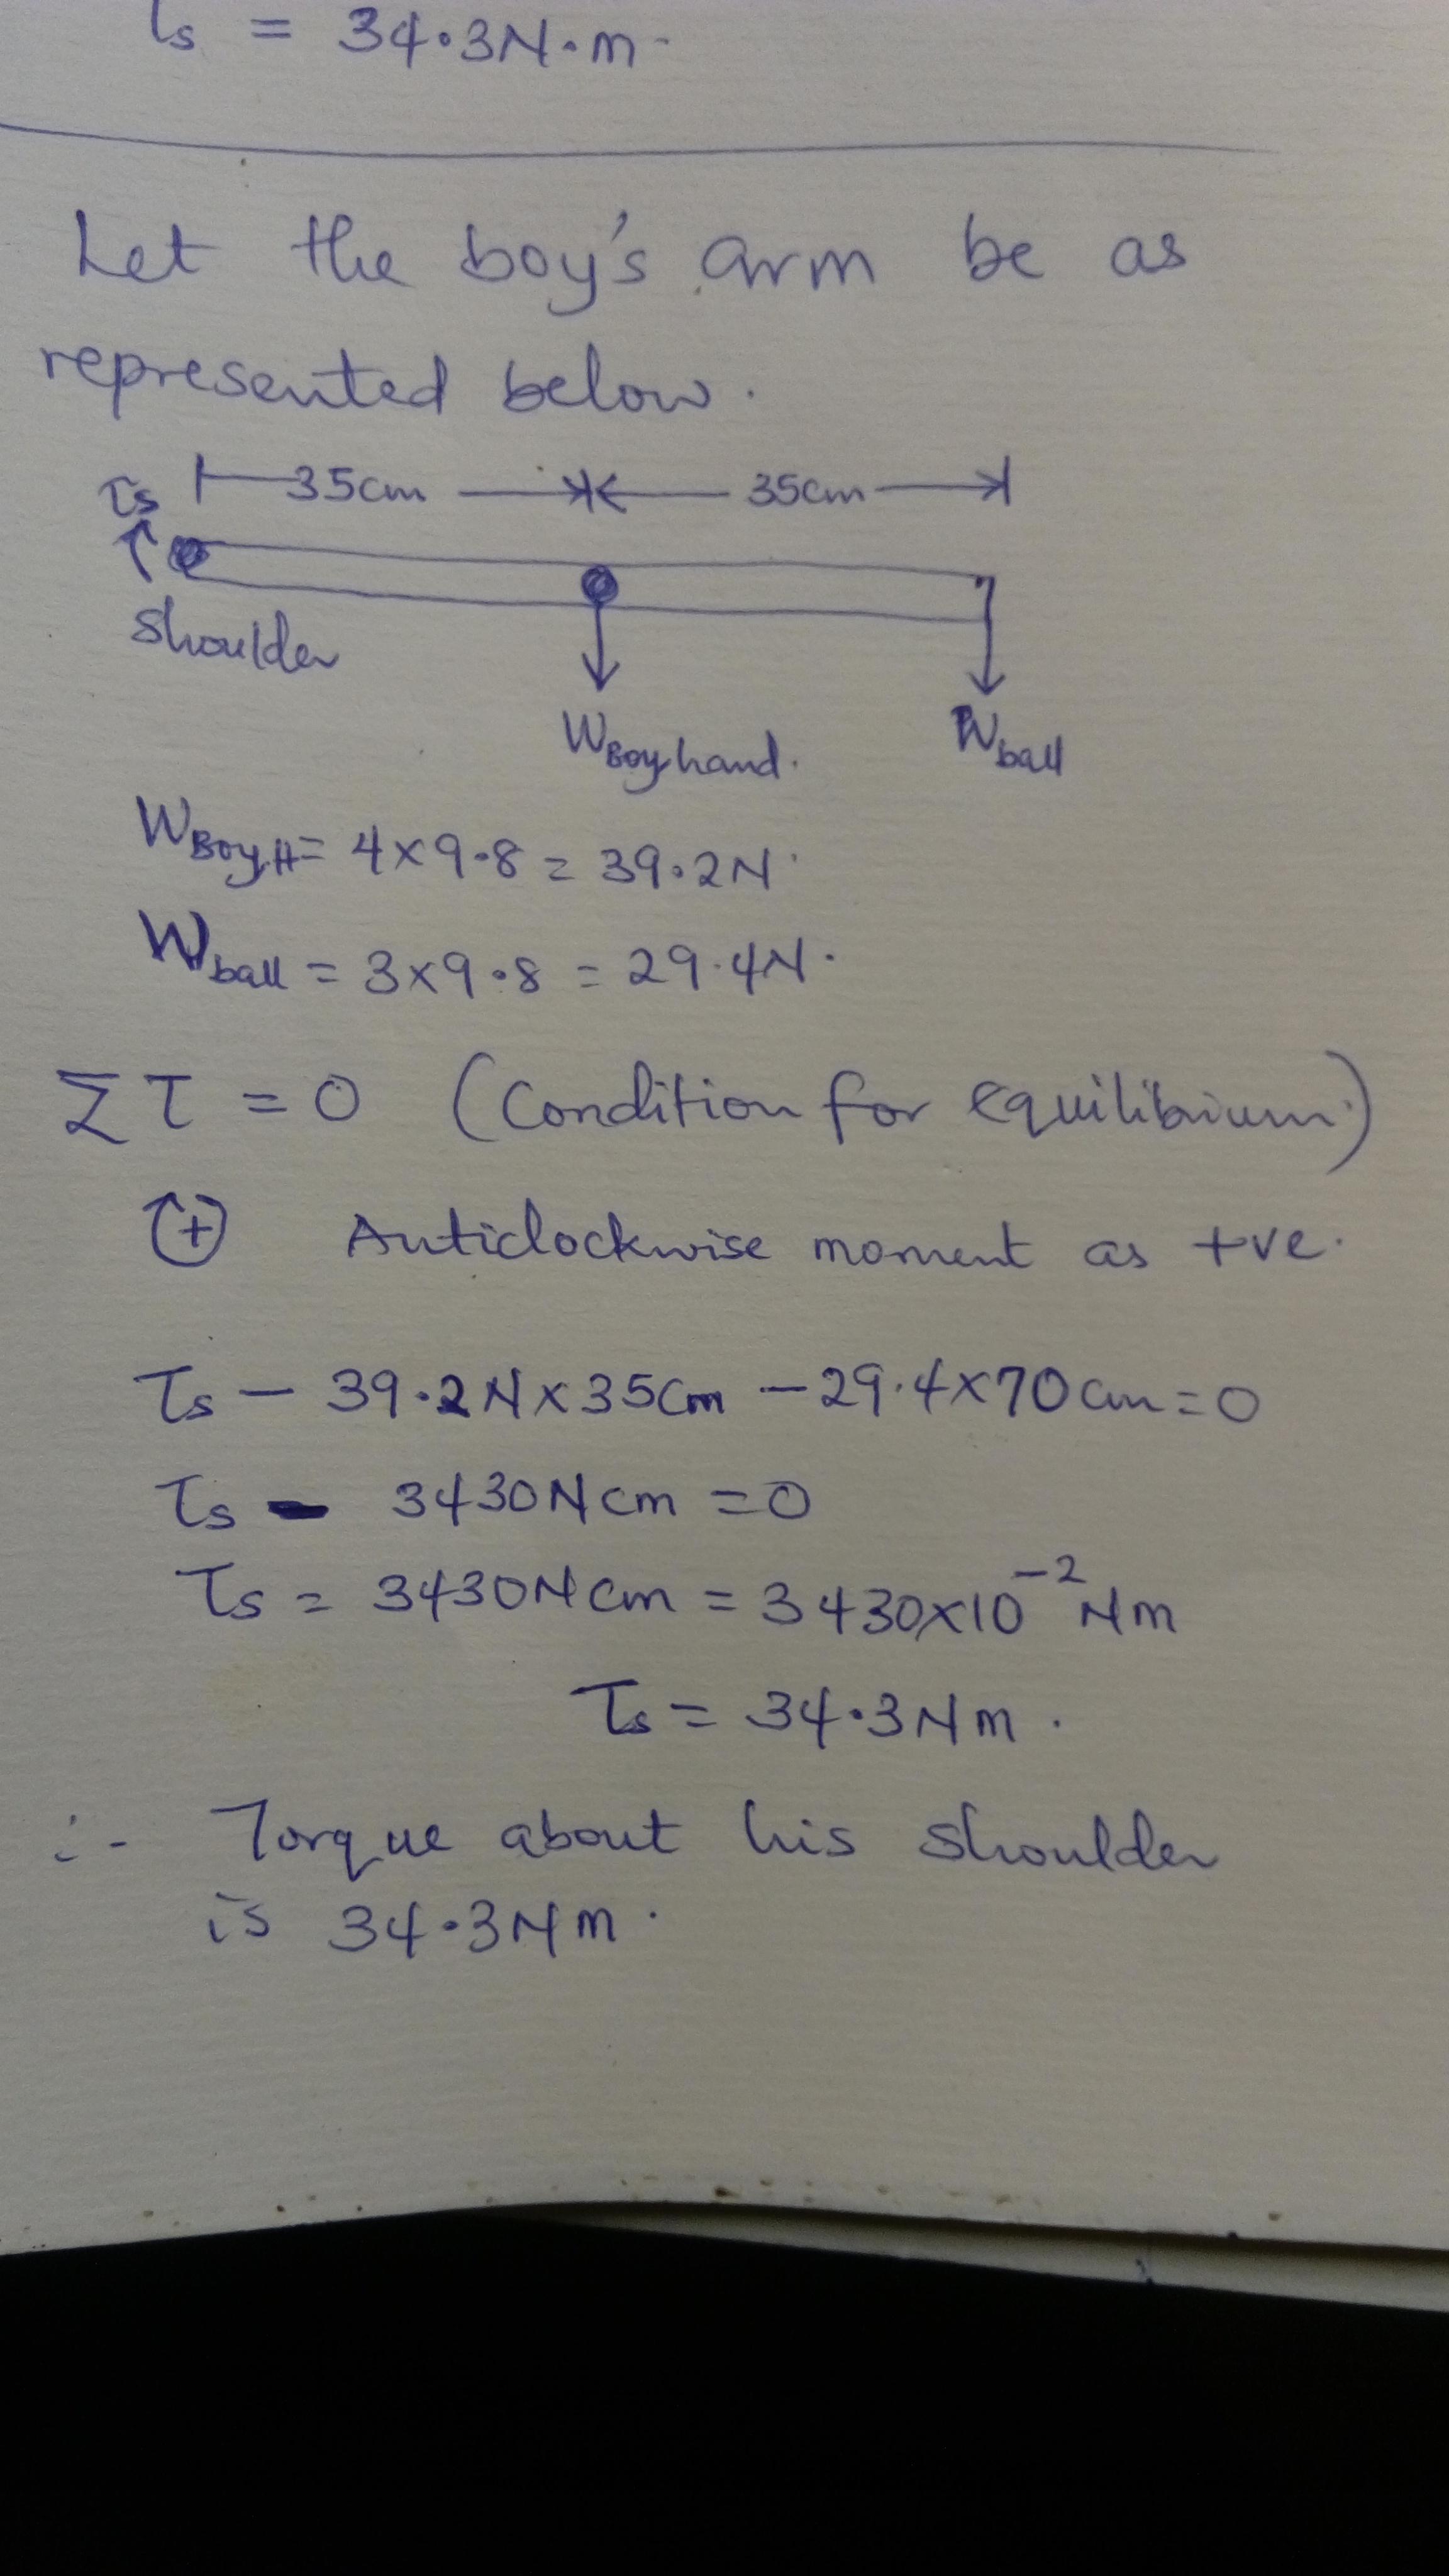 τs = 34.3N.m.
Let the boy's arm be as
represented below.
τs 35cm 35cm
shoulder
WBoy hand. Wball
WBoy,H = 4×9.8 = 39.2N.
Wball = 3×9.8 = 29.4N.
Στ = 0 (Condition for equilibrium.)
+ Anticlockwise moment as +ve.
τs – 39.2N×35cm – 29.4×70cm = 0
τs – 3430Ncm = 0
τs = 3430Ncm = 3430×10⁻² Nm
τs = 34.3Nm.
∴ Torque about his shoulder
is 34.3Nm.